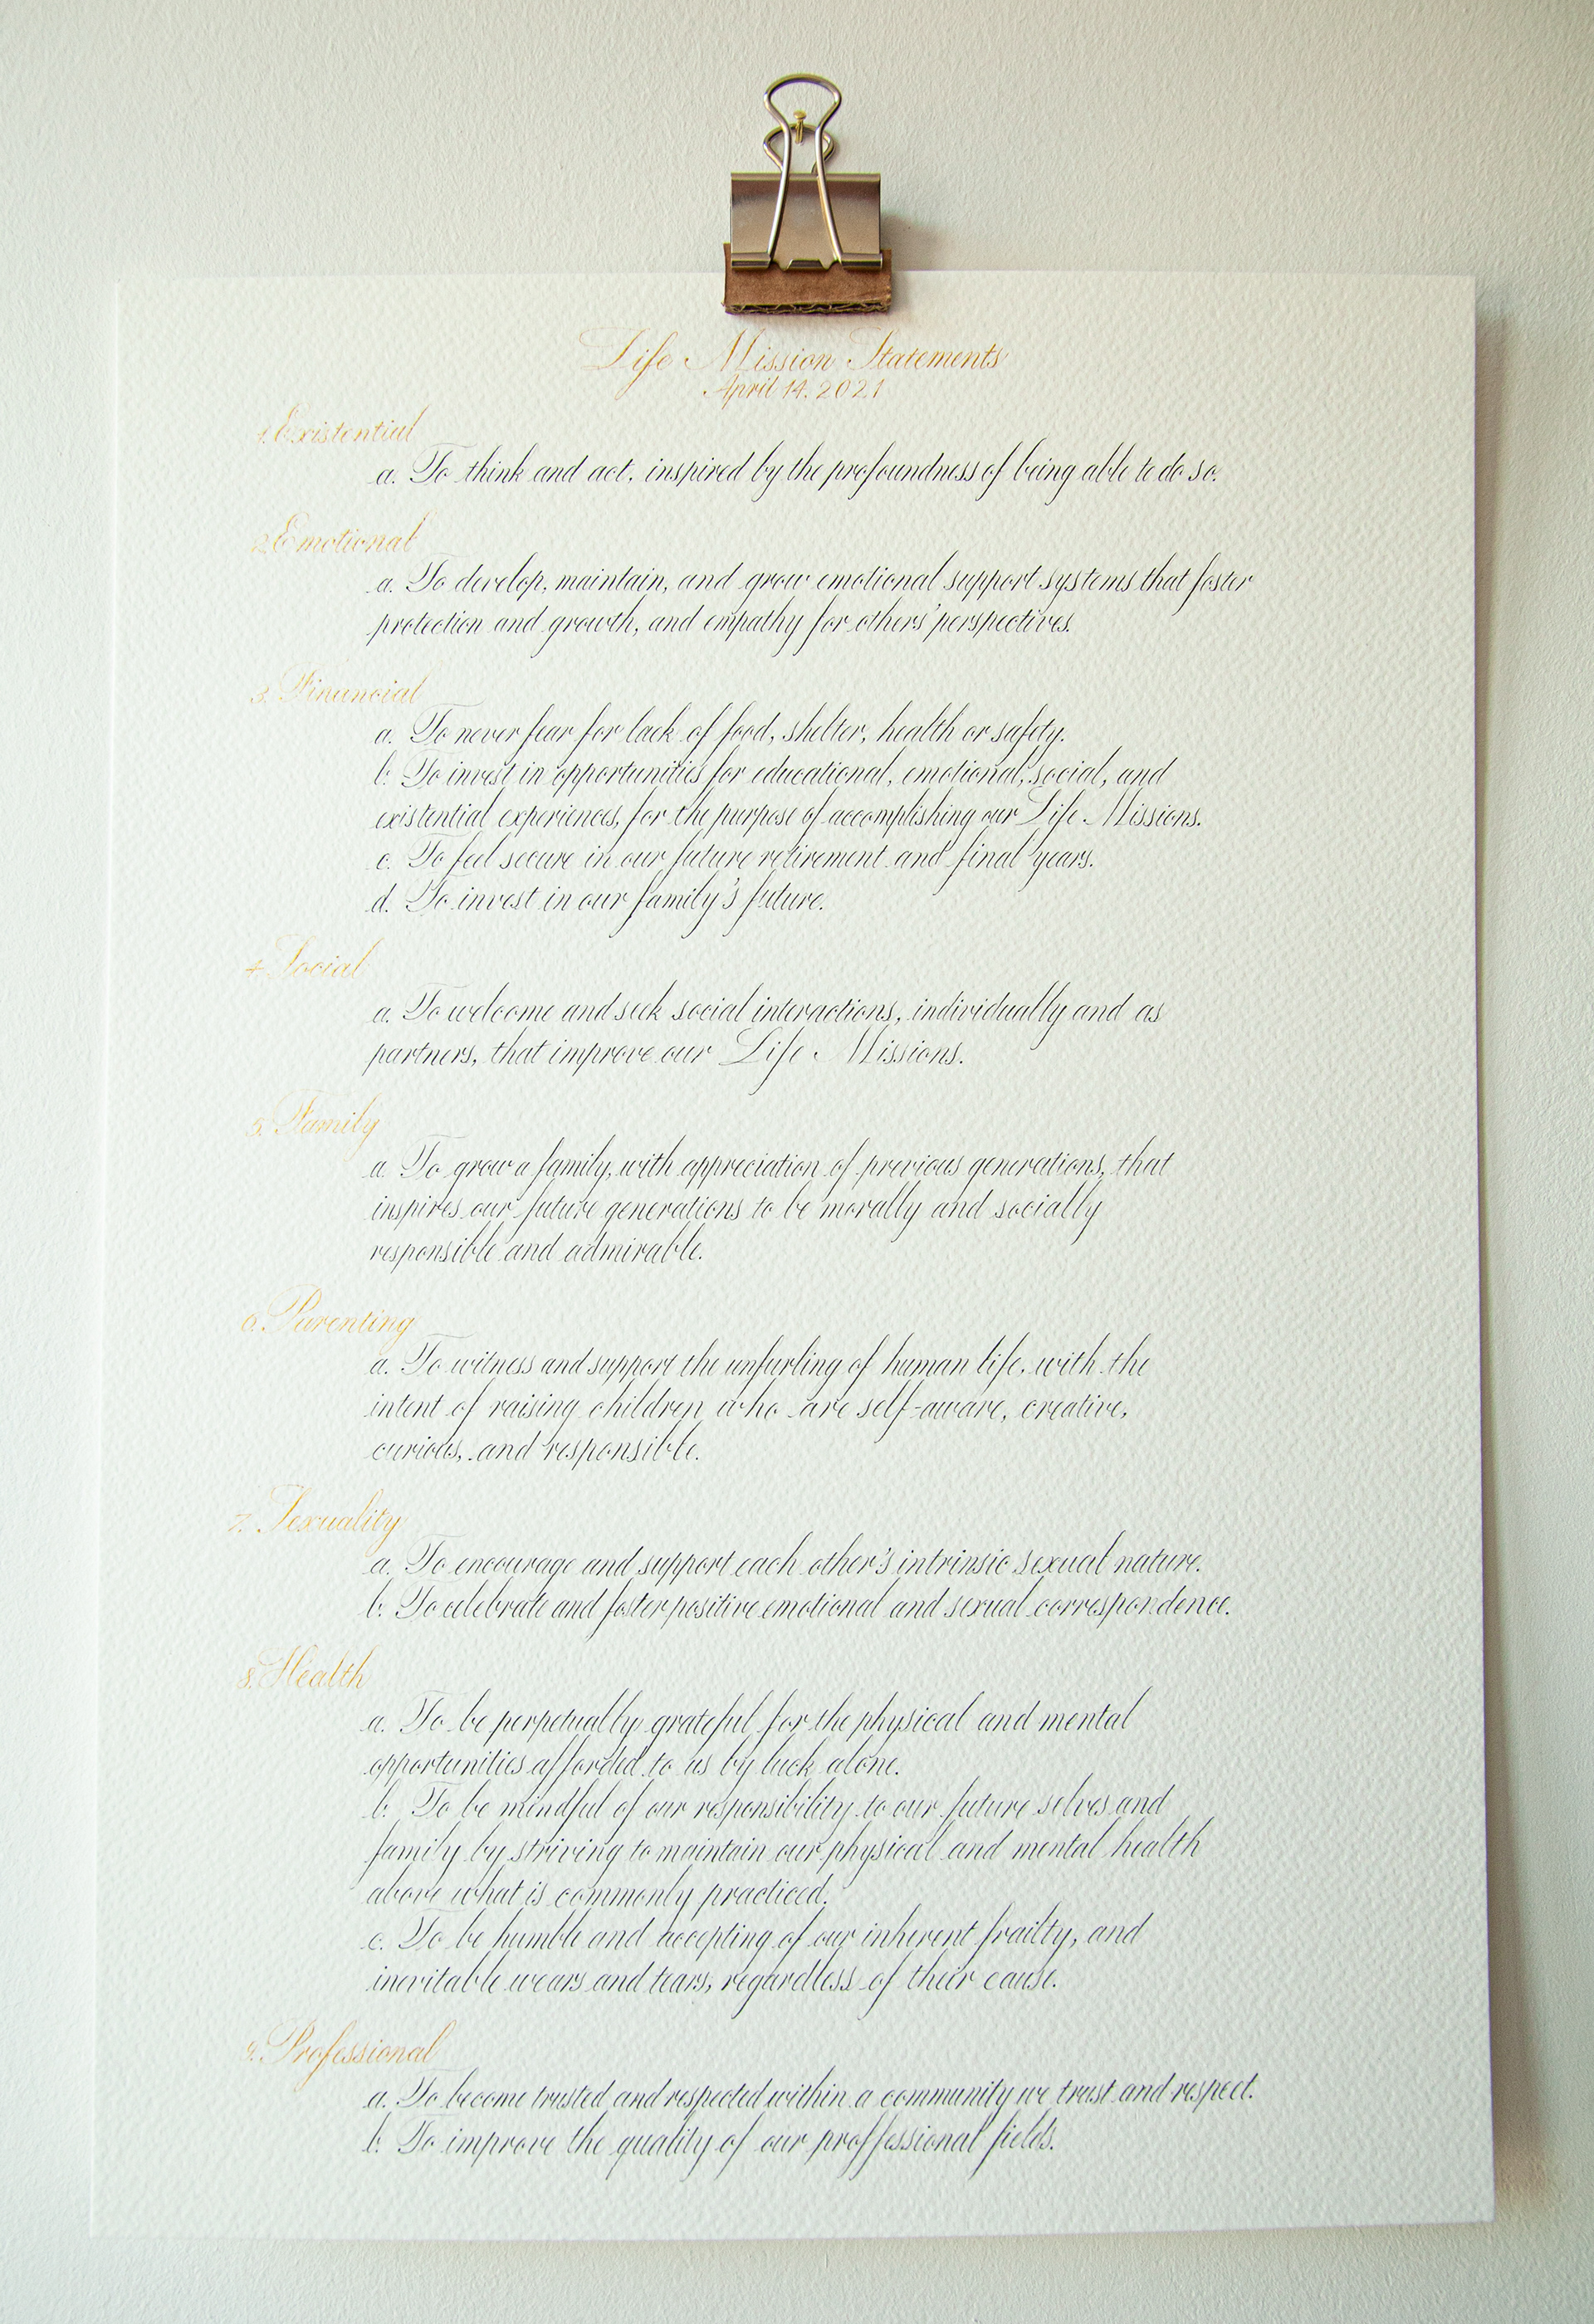 Life Mission Statements
April 14, 2021
1. Existential
a. To think and act, inspired by the profoundness of being able to do so.
2. Emotional
a. To develop, maintain, and grow emotional support systems that foster
protection and growth, and empathy for others' perspectives.
3. Financial
a. To never fear for lack of food, shelter, health or safety.
b. To invest in opportunities for educational, emotional, social, and
existential experiences, for the purpose of accomplishing our Life Missions.
c. To feel secure in our future retirement and final years.
d. To invest in our family's future.
4. Social
a. To welcome and seek social interactions, individually and as
partners, that improve our Life Missions.
5. Family
a. To grow a family, with appreciation of previous generations, that
inspires our future generations to be morally and socially
responsible and admirable.
6. Parenting
a. To witness and support the unfurling of human life, with the
intent of raising children who are self-aware, creative,
curious, and responsible.
7. Sexuality
a. To encourage and support each other's intrinsic sexual nature.
b. To celebrate and foster positive emotional and sexual correspondence.
8. Health
a. To be perpetually grateful for the physical and mental
opportunities afforded to us by luck alone.
b. To be mindful of our responsibility to our future selves and
family by striving to maintain our physical and mental health
above what is commonly practiced.
c. To be humble and accepting of our inherent frailty, and
inevitable wears and tears, regardless of their cause.
9. Professional
a. To become trusted and respected within a community we trust and respect.
b. To improve the quality of our proffessional fields.